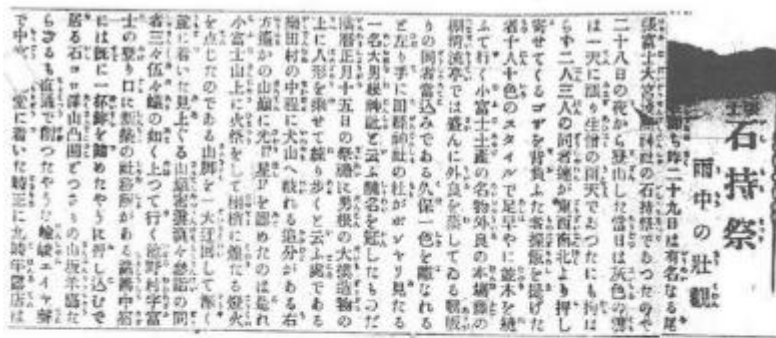 石持祭
雨中の壯觀
昨二十九日は有名なる尾
張富士大宮淺間神社の石持祭であつたので
二十八日の夜から登山した當日は灰色の雲
は一天に漲り生憎の雨天であつたにも拘は
らず二人三人の同者連が東西南北より押し
寄せてくるゴザを背負ふた茶採飯を提げた
者十人十色のスタイルで足早やに並木を縫
ふて行く小富士土産の名物外良の本場
棚清流亭では盛んに外良を蒸してゐる
りの同者當込みである久保一色を離れる
と左り手に田縣神社の杜がボンヤリ見たる
一名大男根神社と云ふ醜名を冠したものだ
舊暦正月十五日の祭禮に男根の大模造物の
上に人形を乘せて練り歩くと云ふ處である
樂田村の中程に犬山へ岐れる追分がある右
方遙かの山巓に光り星を認めたのは是れ
小富士山上に火祭をして樹梢に煌たる燈火
を點じたのである山脚を一大迂回して漸く
麓に着いた見上ぐる山巓參詣の同
者三々伍々蟻の如く上つて行く池野村字富
士の登り口に祭の社務所がある
には既に一杯を踏めたやうに押し込むで
居る石コロ澤山凸凹でつさりの山坂羊腸た
らざるも直通で削つたやうな嶮峻エイヤ聲
で中 堂に着いた時正に九時半露店は